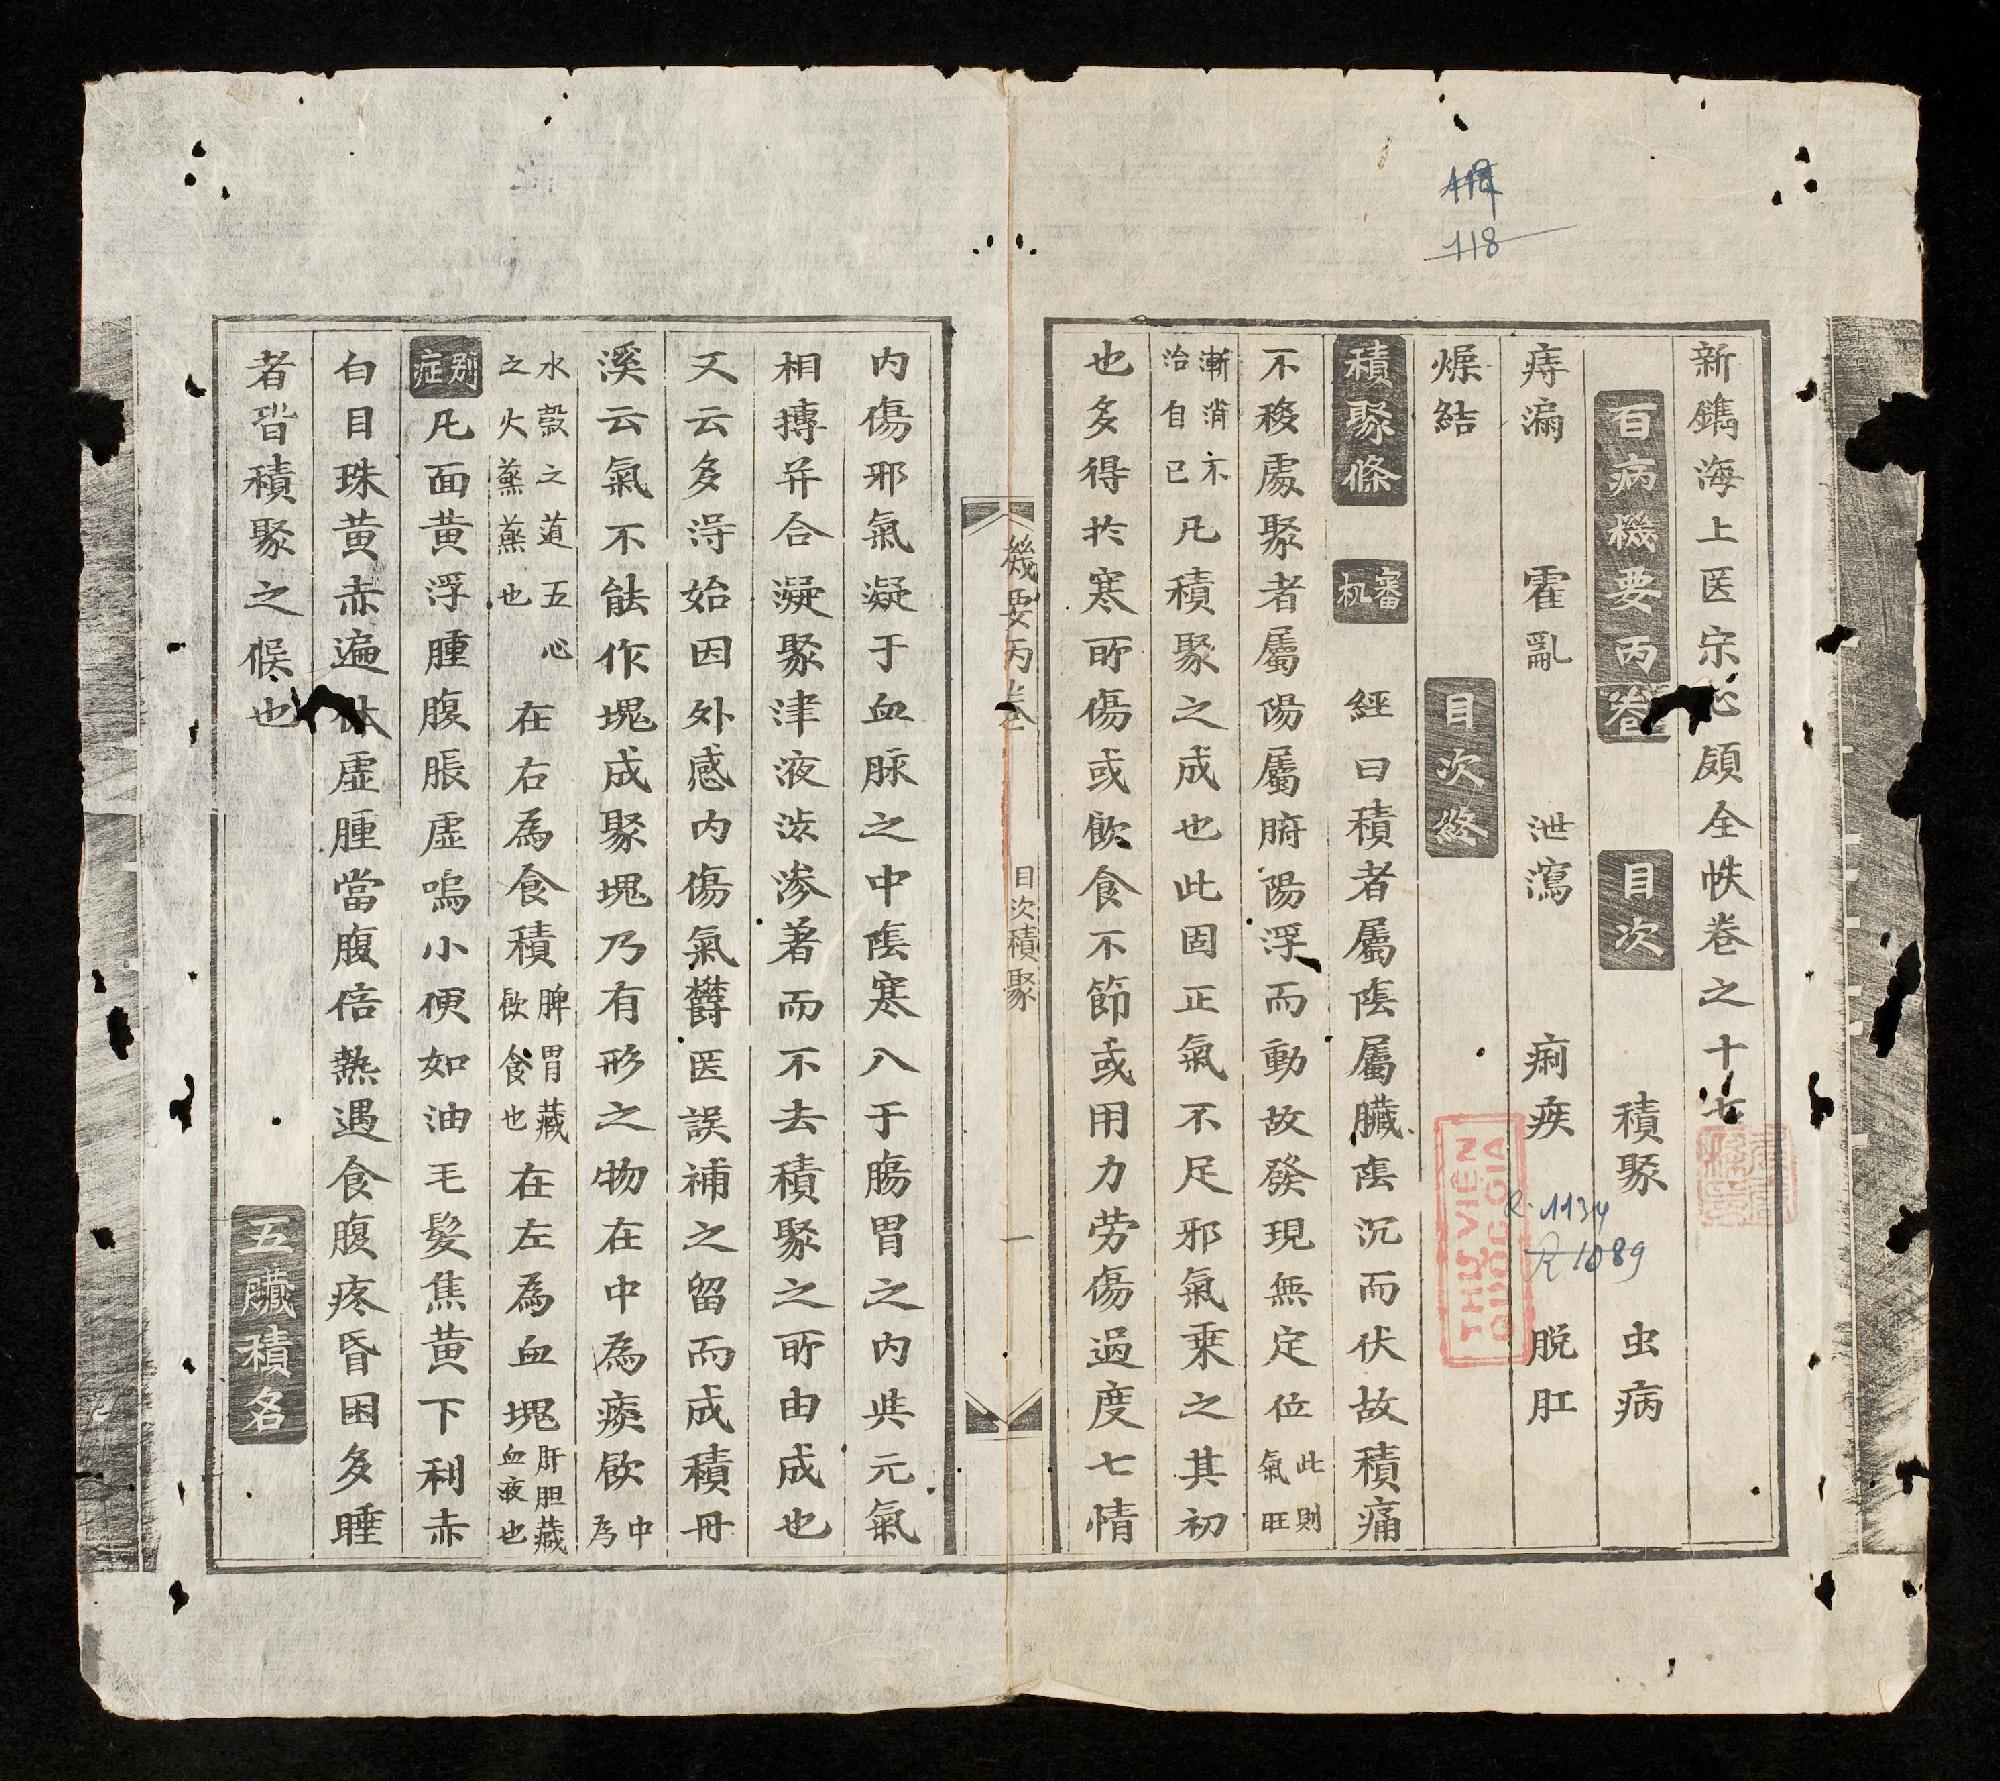 新鐫海上医宗心領全帙卷之十七
百病機要丙卷　目次　積聚　虫病
痔漏　霍亂　泄瀉　痢疾　脱肛
燥結　目次終
積聚條　審机　經曰積者屬陰屬臟陰沉而伏故積痛
不移處聚者屬陽屬腑陽浮而動故發現無定位此則氣旺
漸消不治自已凡積聚之成也此固正氣不足邪氣乗之其初
也多得於寒所傷或飲食不節或用力劳傷過度七情
機要丙卷　目次積聚　一
内傷邪氣凝于血脉之中陰寒入于腸胃之内與元氣
相搏并合凝聚津液澁滲著而不去積聚之所由成也
又云多浔始因外感内傷氣欝医誤補之留而成積丹
溪云氣不能作塊成聚塊乃有形之物在中為痰飲中為
水穀之道五心之火蒸蒸也在右為食積脾胃藏飲食也在左為血塊肝胆藏血液也
别症　凡面黄浮腫腹脹虚鳴小便如油毛髮焦黄下利赤
白目珠黄赤遍体虚腫當腹倍熱遇食腹疼昏困多睡
者皆積聚之候也　五臟積名
118
R.1134
R 1089
THƯ VIỆN
QUỐC GIA